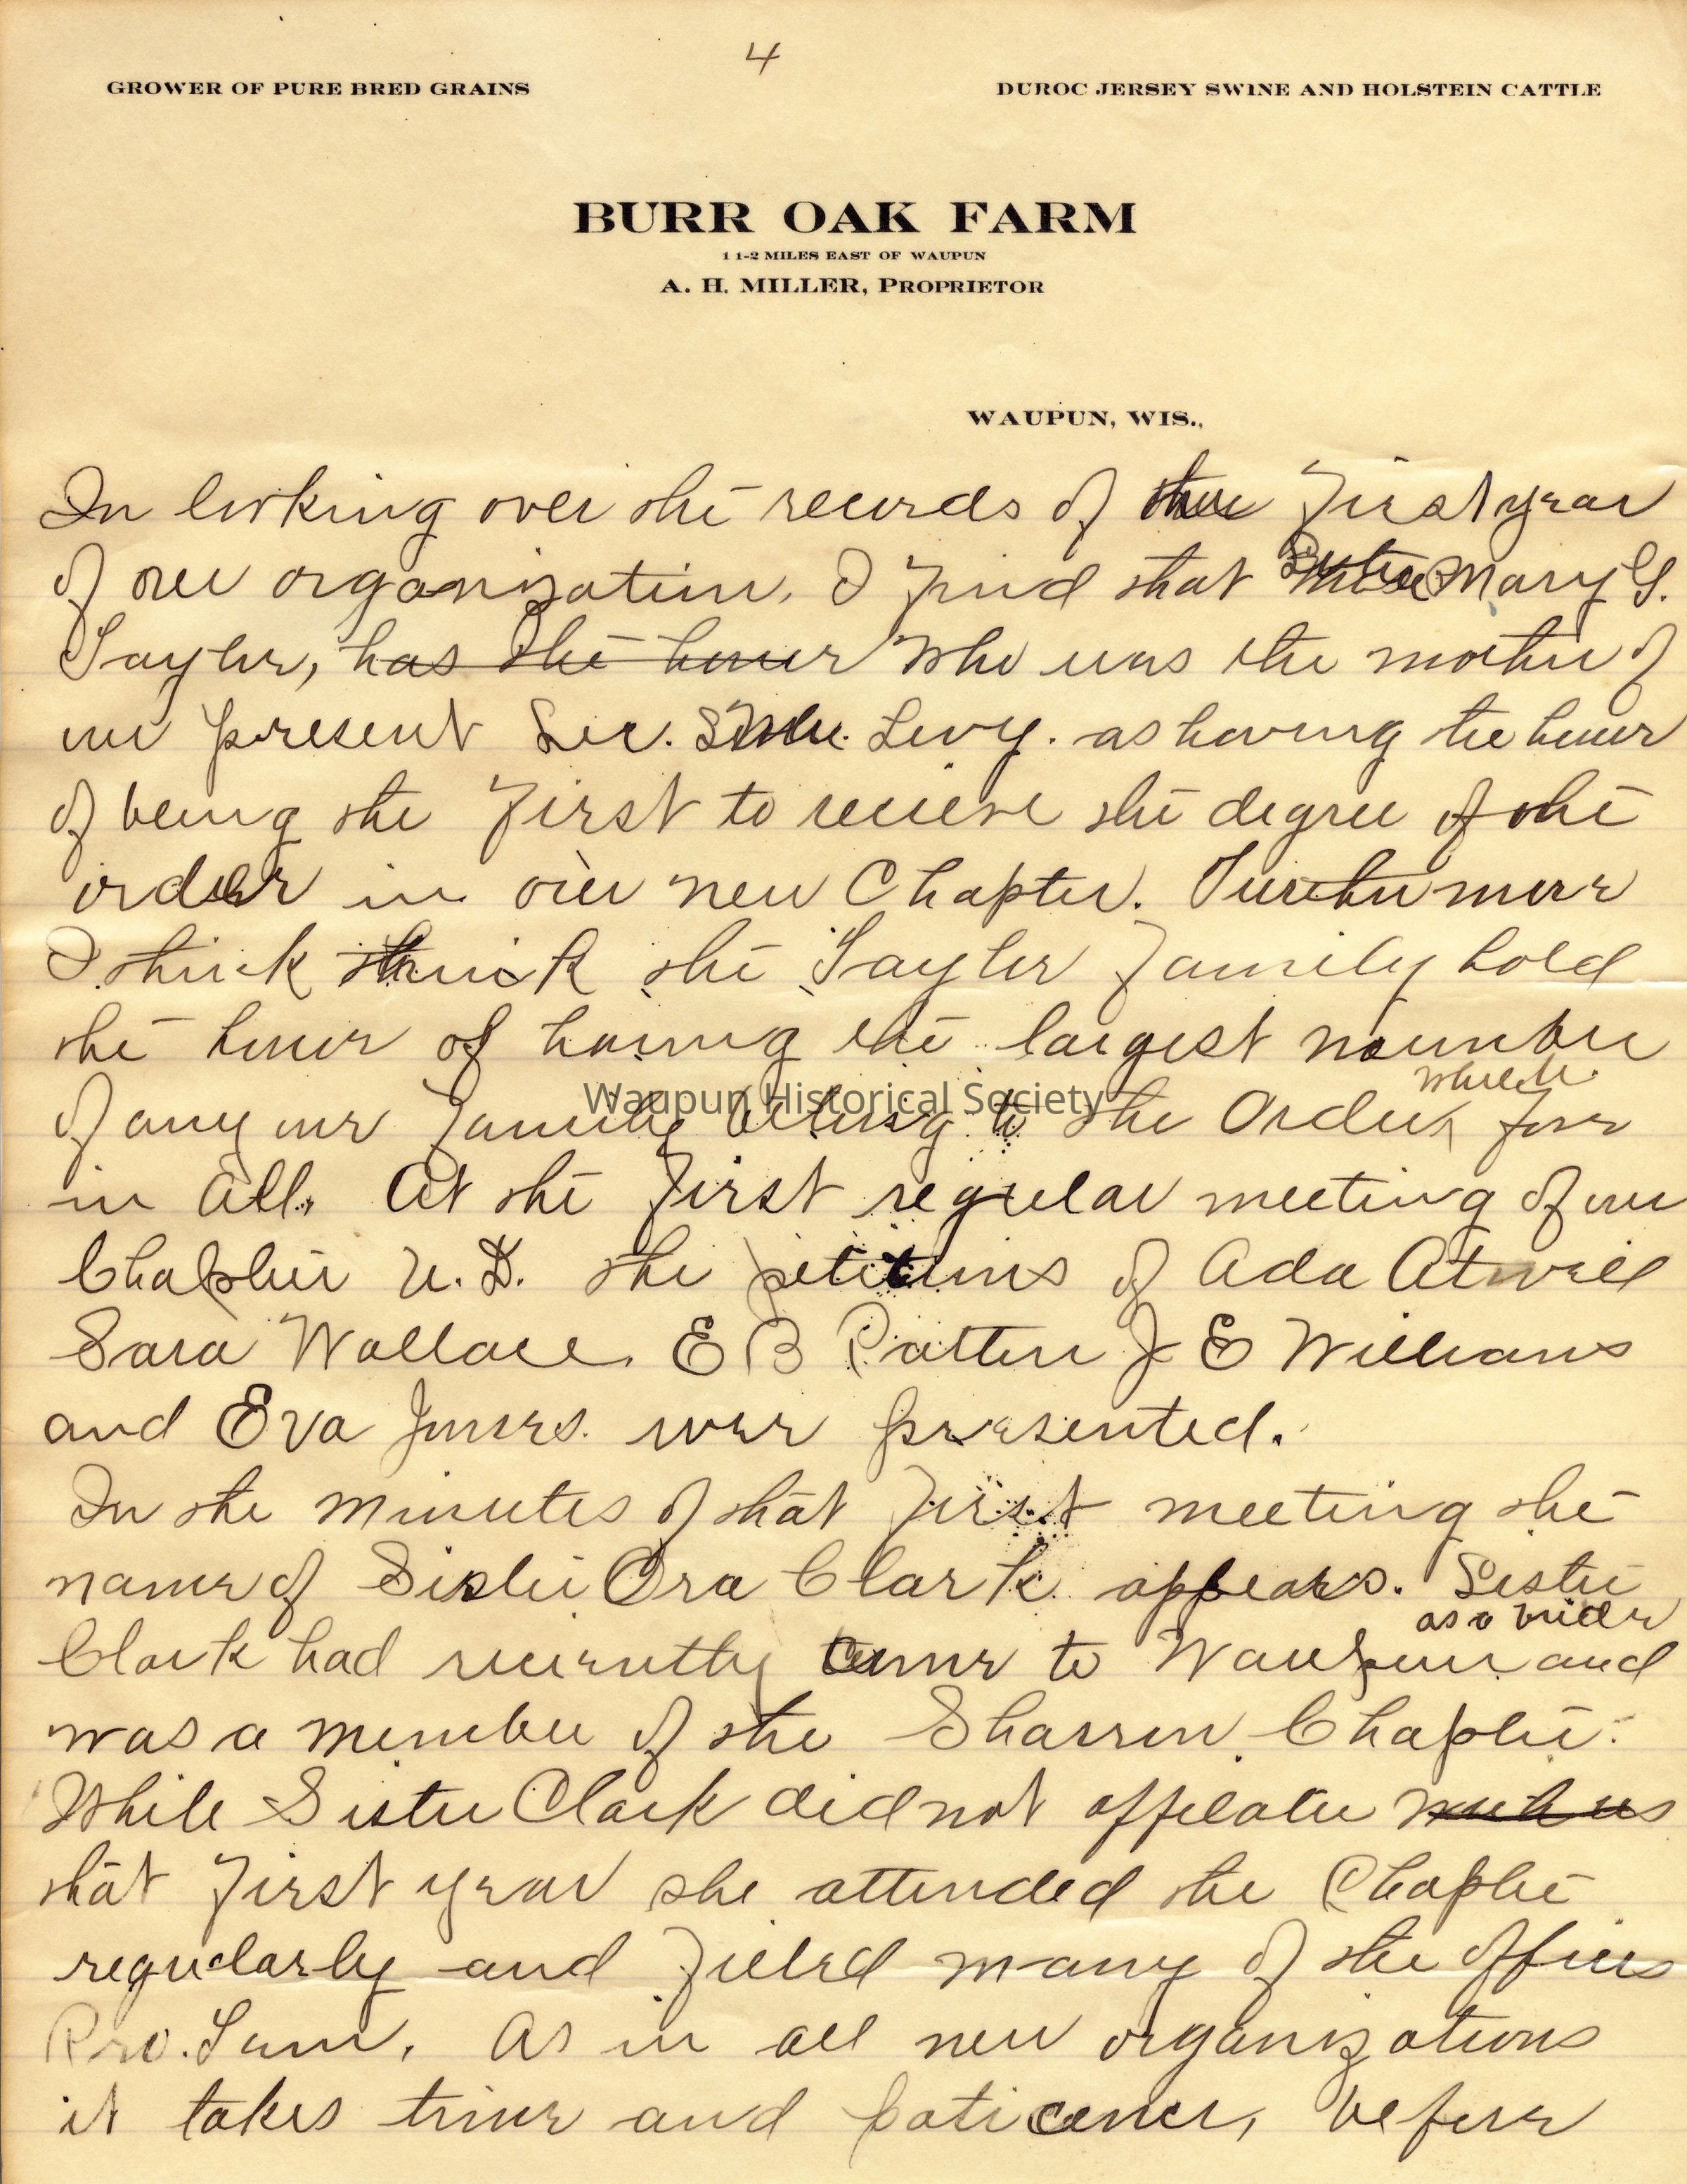 4
GROWER OF PURE BRED GRAINS
DUROC JERSEY SWINE AND HOLSTEIN CATTLE
BURR OAK FARM
1 1-2 MILES EAST OF WAUPUN
A. H. MILLER, PROPRIETOR
WAUPUN, WIS.,
In looking over the records of the First year
of our organization, I find that Sister Mary G.
Taylor, has the honor who was the mother of
our present Sec. Levy. as having the honor
of being the First to recieve the degree of the
order in our new Chapter. Furthermore
I think think the Taylor Family hold
the honor of having the largest nounber
which
of any our Family belong to the Order, four
in all. At the First regular meeting of our
Chapter U.D. the petitions of Ada Atwell
Sara Wallace. E B Patten J E Williams
and Eva Jones. were presented.
In the minutes of that First meeting the
name of Sister Ora Clark appears. Sister
as a bride
Clark had recently come to Waupun and
was a member of the Sharron Chapter.
While Sister Clark did not affilate with us
that First year she attended the Chapter
regularly and Filled many of the offices
Pro. Tem. As in all new organizations
it takes time and paticence, before
Waupun Historical Society